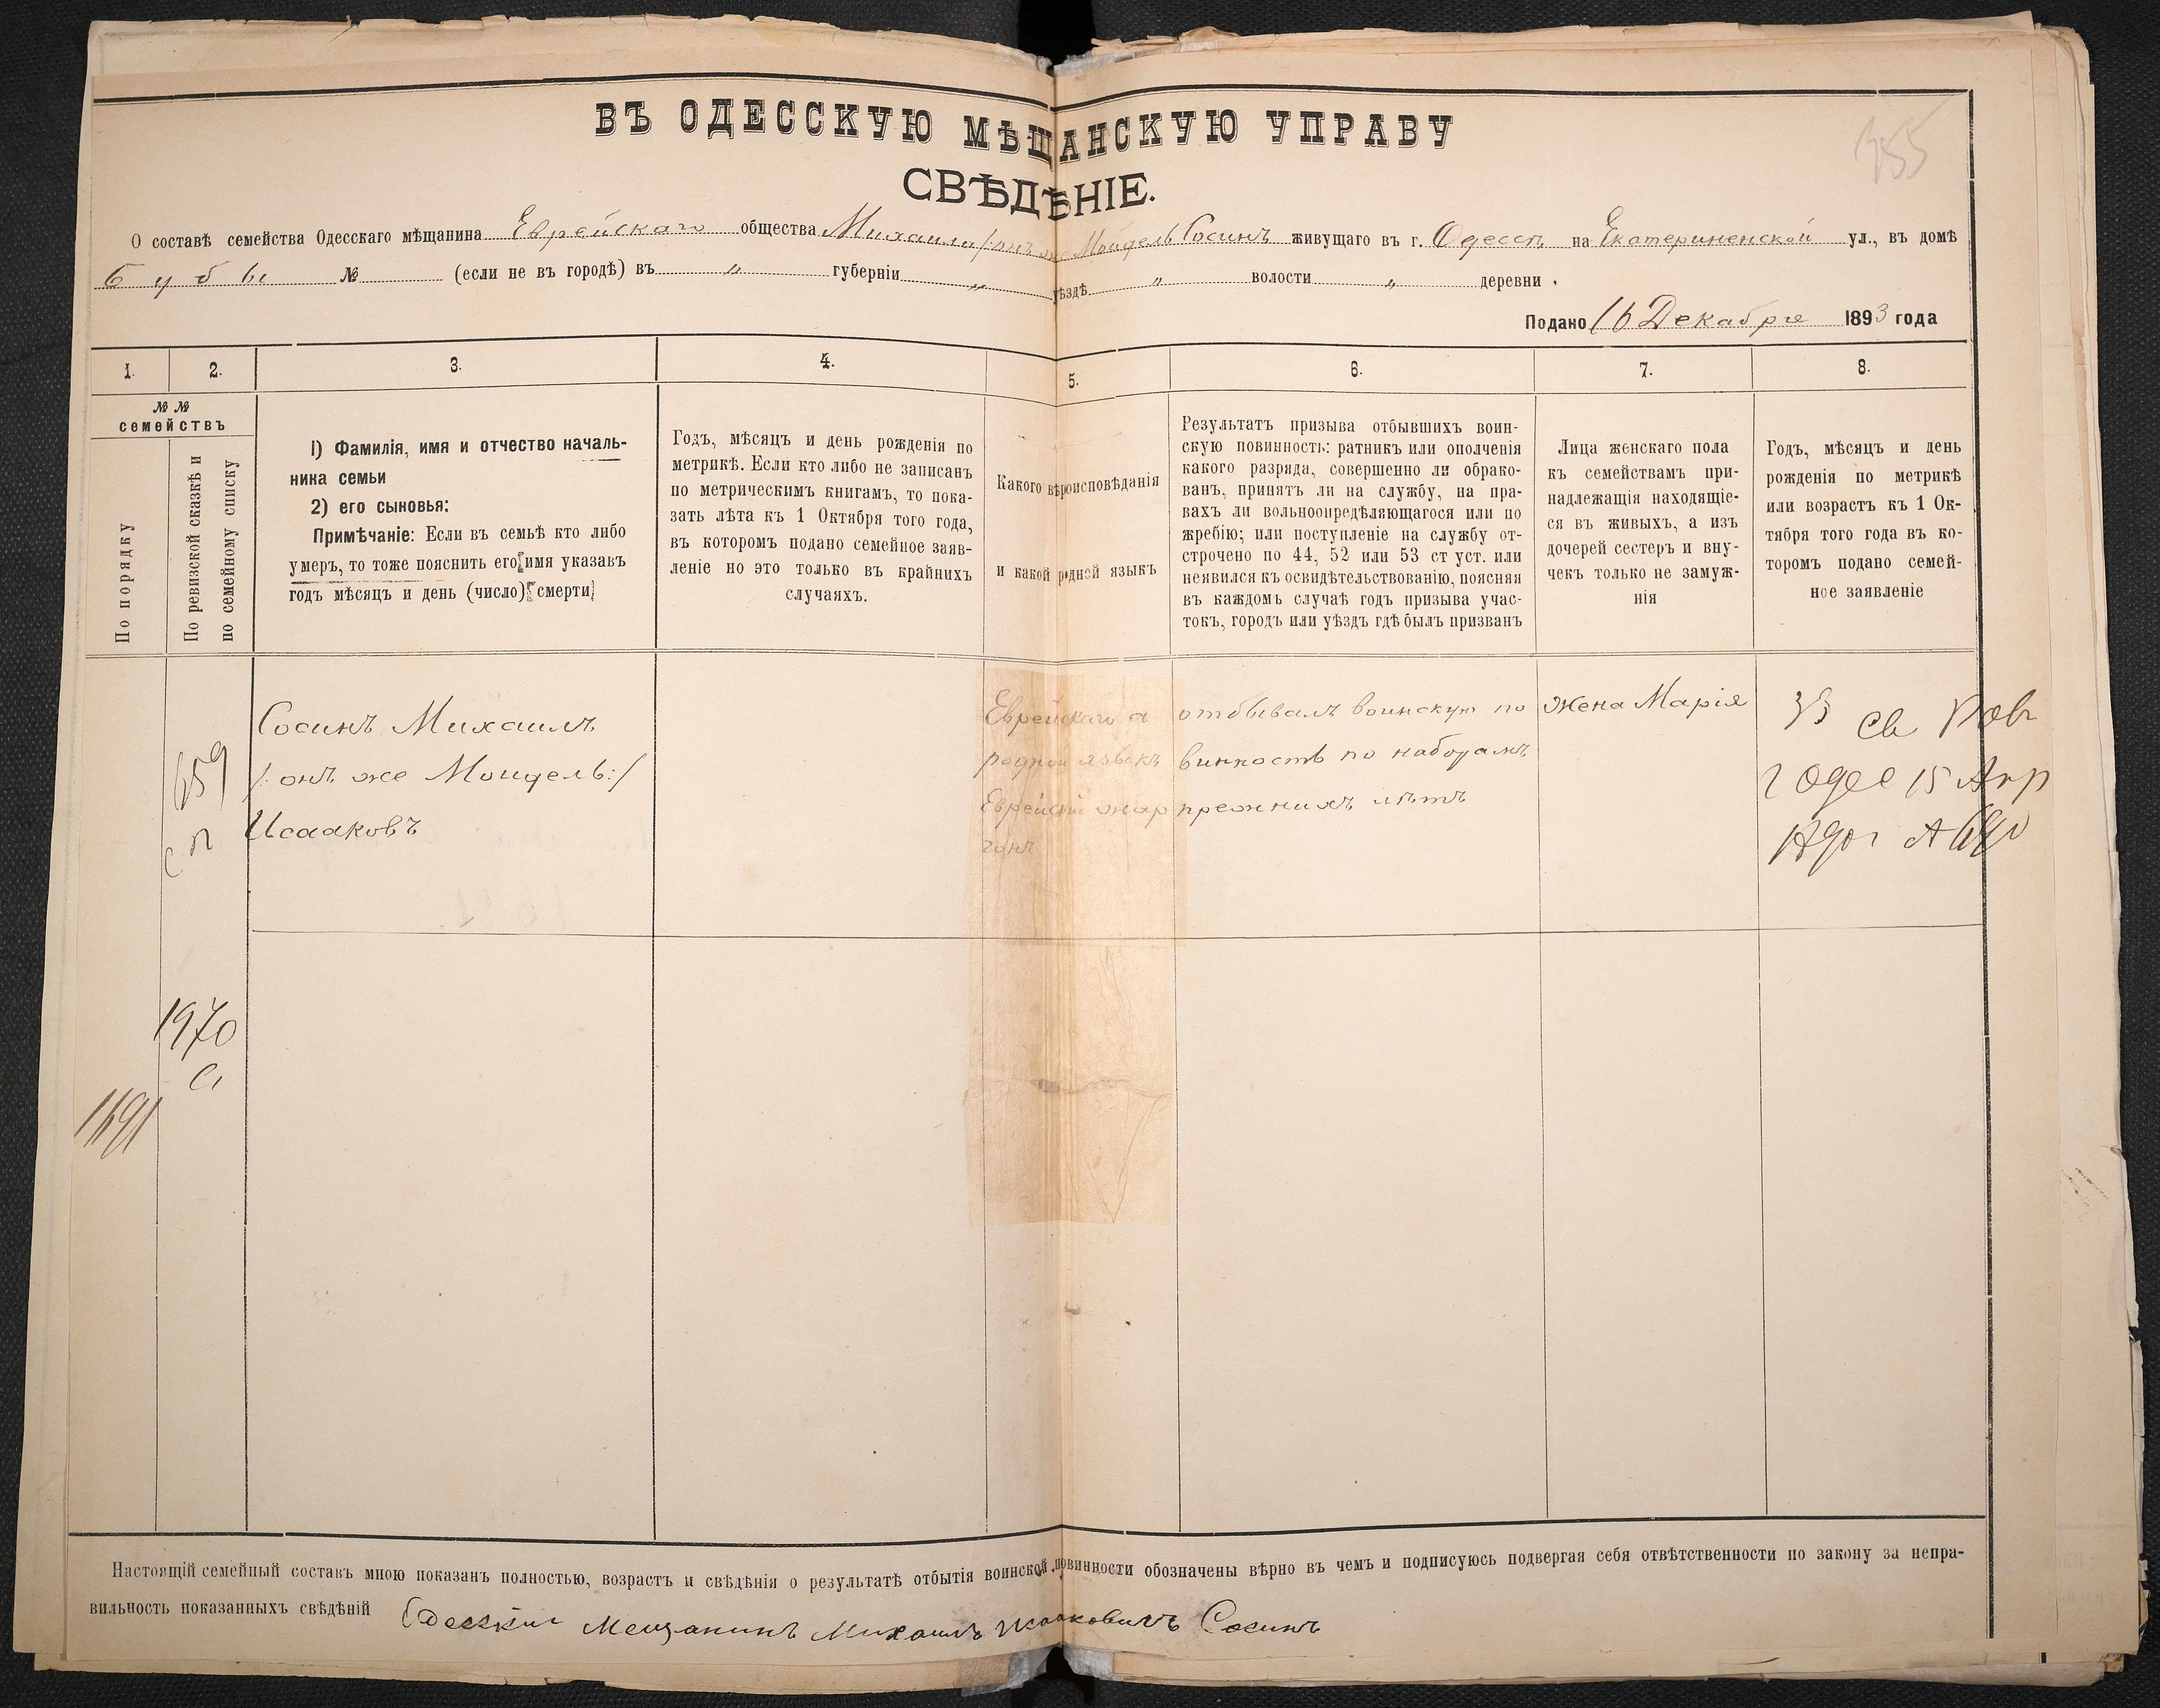 ВЪ ОДЕССКУЮ МѢЩАНСКУЮ УПРАВУ
СВѢДѢНІЕ.
О составѣ семейства Одесскаго мѣщанина Еврейскаго общества Михаила /онъ же Мойдель Сосинъ живущаго въ г. Одессѣ на Екатериненской ул., въ домѣ
Бубы № (если не въ городѣ) въ " губерніи " уѣздѣ " волости " деревни
Подано 16 Декабре 1893 года
1. 2. 3. 4. 5. 6. 7. 8.
№ №
семействъ
По порядку
По ревизской сказкѣ и
по семейному списку
1) Фамилія, имя и отчество началь-
ника семьи
2) его сыновья:
Примѣчаніе: Если въ семьѣ кто либо
умеръ, то тоже пояснить его имя указавъ
годъ мѣсяцъ и день (число) смерти
Годъ, мѣсяцъ и день рожденія по
метрикѣ. Если кто либо не записанъ
по метрическимъ книгамъ, то пока-
зать лѣта къ 1 Октября того года,
въ которомъ подано семейное заяв-
леніе но это только въ крайнихъ
случаяхъ.
Какого вѣроисповѣданія
и какой родной языкъ
Результатъ призыва отбывшихъ воин-
скую повинность: ратникъ или ополченія
какого разряда, совершенно ли обрако-
ванъ, принятъ ли на службу, на пра-
вахъ ли вольноопредѣляющагося или по
жребію; или поступленіе на службу от-
строчено по 44, 52 или 53 ст уст. или
неявился къ освидѣтельствованію, поясняя
въ каждомъ случаѣ годъ призыва учас-
токъ, городъ или уѣздъ гдѣ былъ призванъ
Лица женскаго пола
къ семействамъ при-
надлежащія находящіе-
ся въ живыхъ, а изъ
дочерей сестеръ и вну-
чекъ только не замуж-
нія
Годъ, мѣсяцъ и день
рожденія по метрикѣ
или возрастъ къ 1 Ок-
тября того года въ ко-
торомъ подано семей-
ное заявленіе
659
с п
1970
с
1691
Сосинъ Михаилъ
/: онъ же Мойдель:/
Исааковъ
Еврейскаго а
родной языкъ
Еврейскій жар
гонъ
отбывалъ воинскую по
винность по наборамъ
прежнихъ лѣтъ
Жена Марія
33
Св
г Одес 15 Апр
Настоящій семейный составъ мною показанъ полностью, возрастъ и свѣдѣнія о результатѣ отбытія воинской повинности обозначены вѣрно въ чемъ и подписуюсь подвергая себя отвѣтственности по закону за непра-
вильность показанныхъ свѣдѣній Одесскіи Мещанинъ Михаилъ Исааковичъ Сосинъ